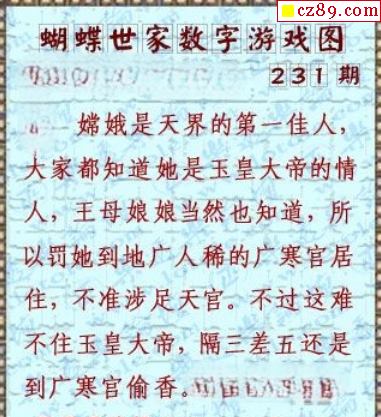 cz89.com
蝴蝶世家数字游戏图
231期
嫦娥是天界的第一佳人，
大家都知道她是玉皇大帝的情
人，王母娘娘当然也知道，所
以罚她到地广人稀的广寒官居
住，不准涉足天官。不过这难
不住玉皇大帝，隔三差五还是
到广寒官偷香。